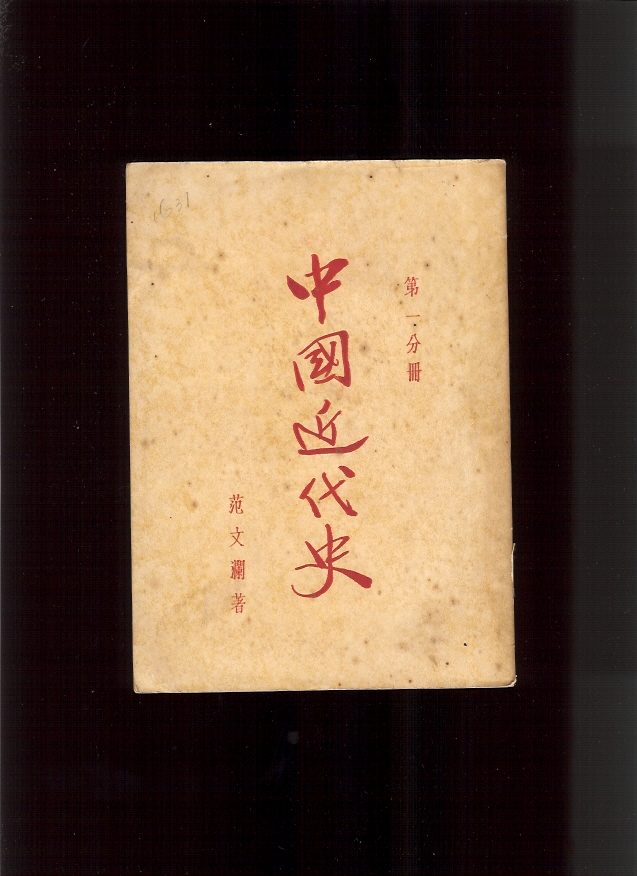 第一分冊
中國近代史
范文瀾著
1631